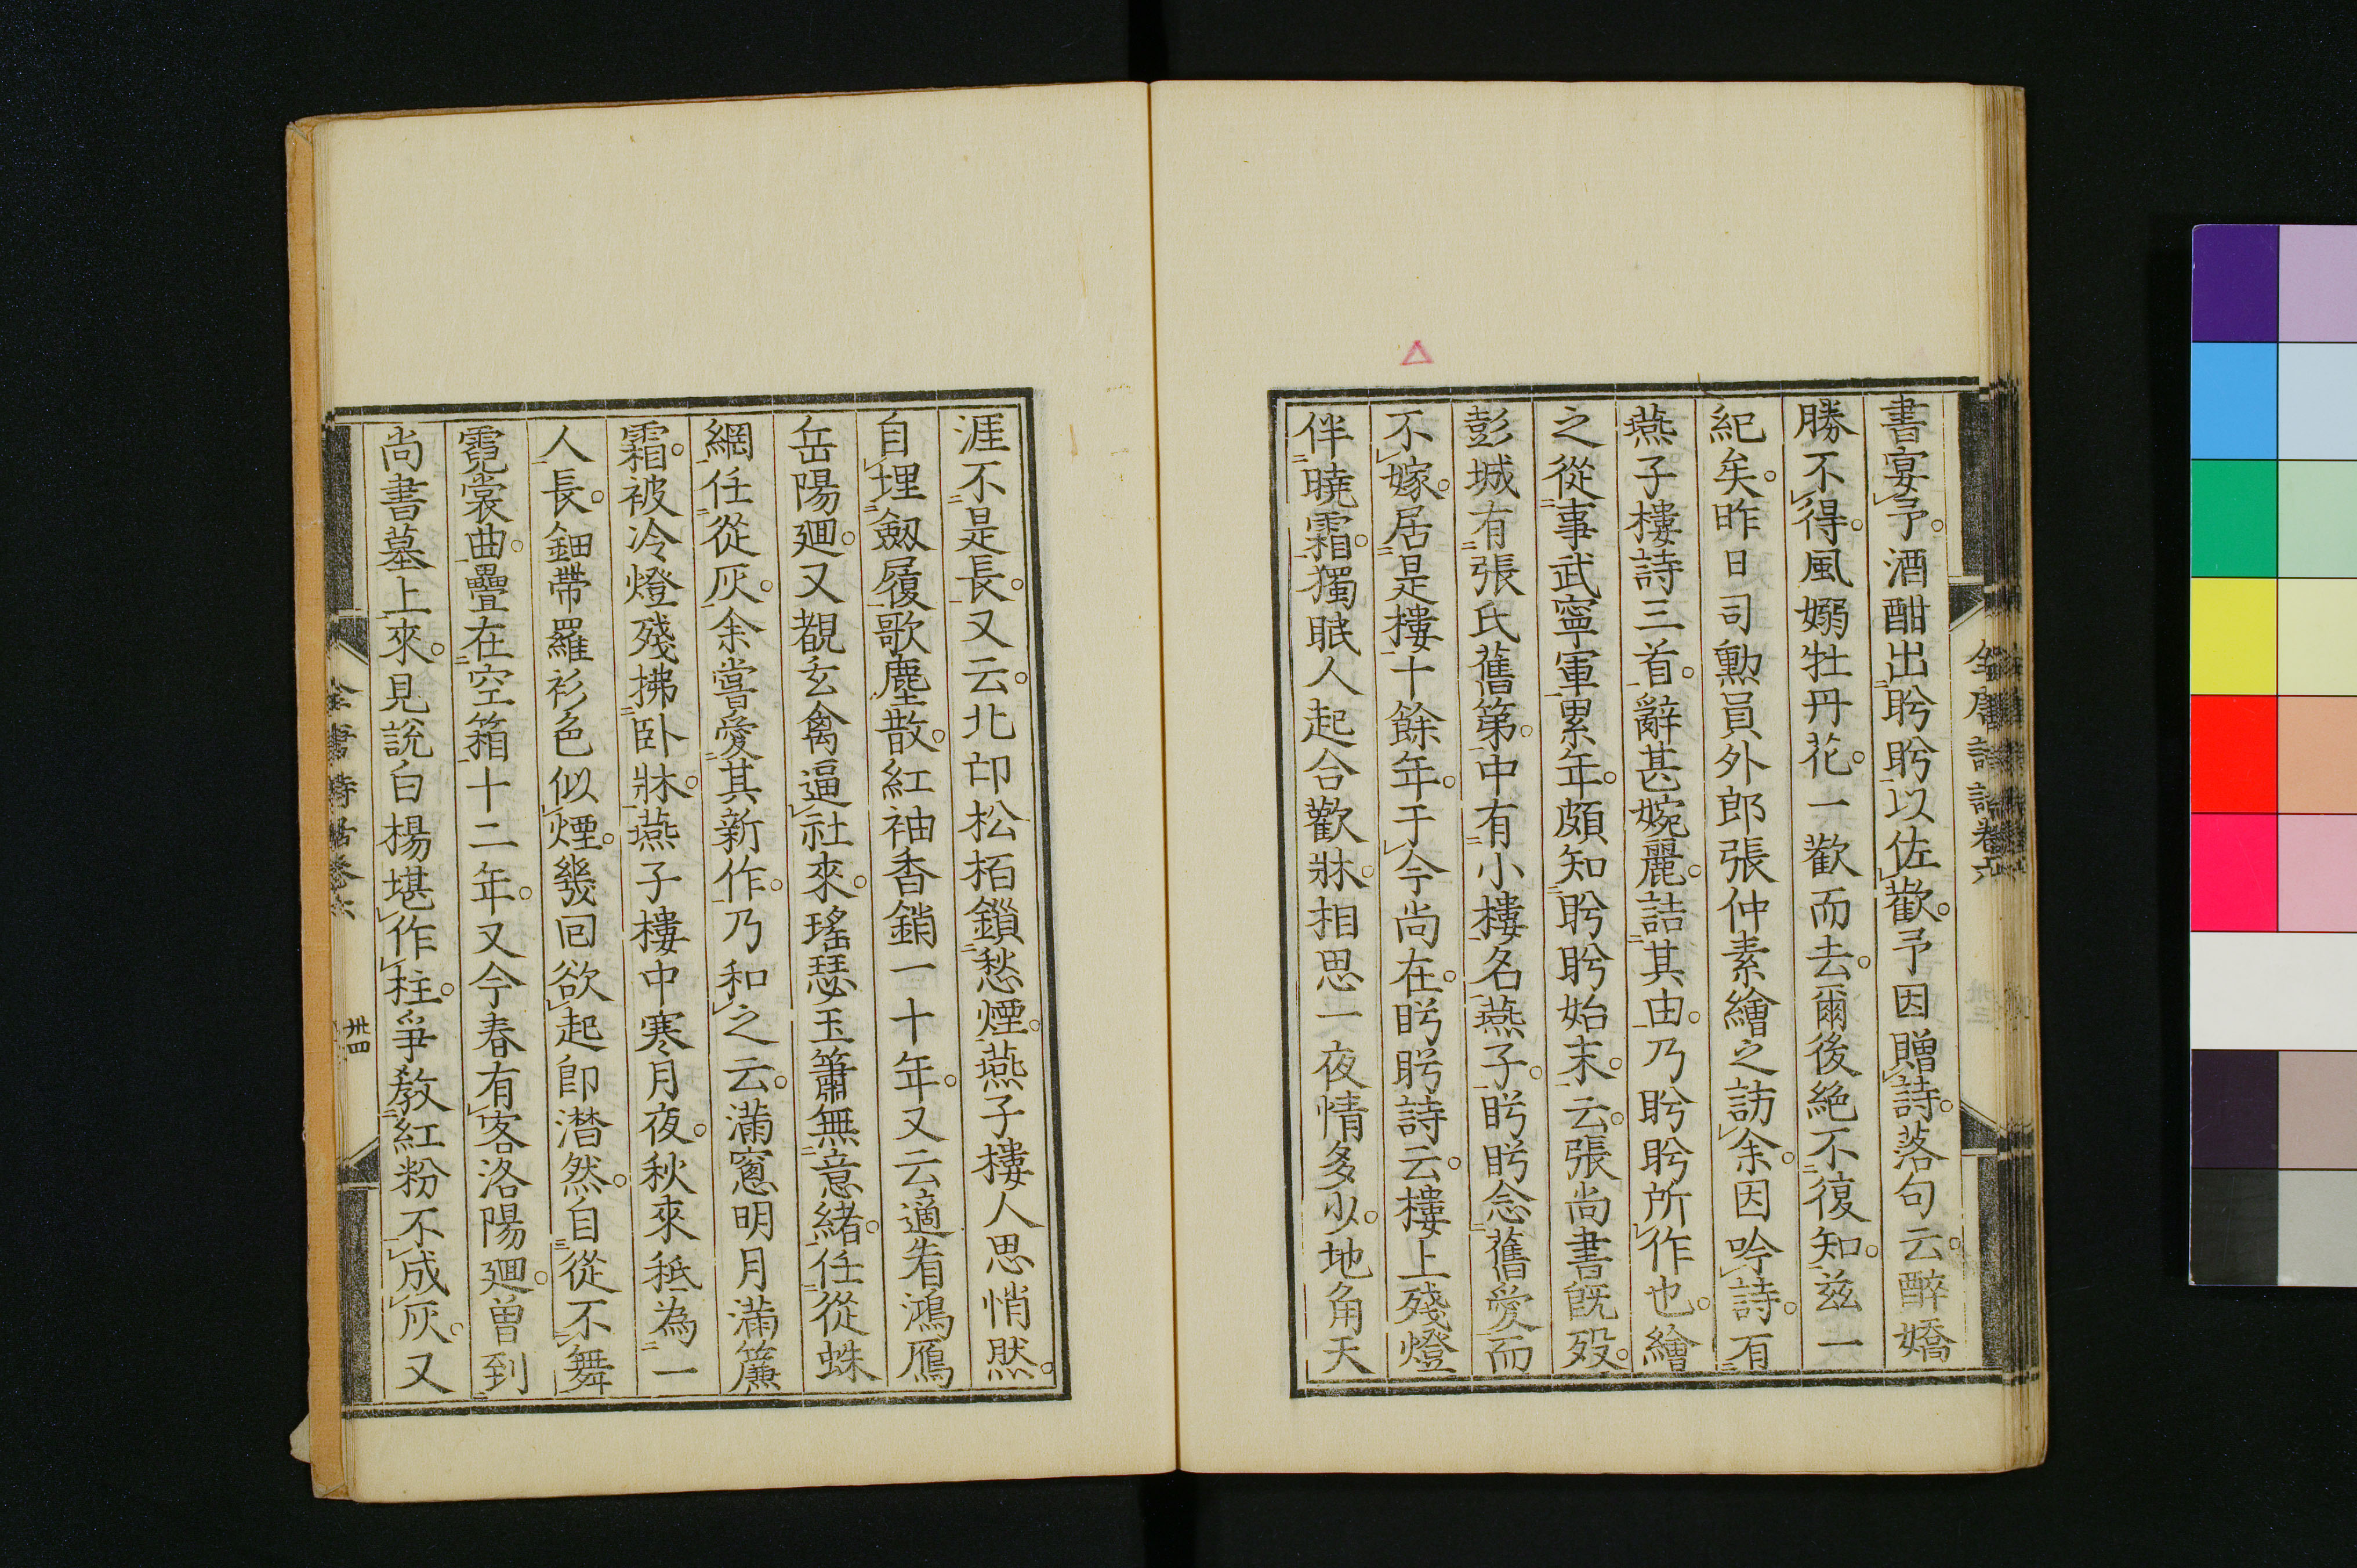 書宴予酒酣出盻盻以佐歡予因贈詩落句云醉嬌
勝不得風嫋牡丹花一歡而去爾後絶不復知兹一
紀矣昨日司勳員外郎張仲素繪之訪余因吟詩有
燕子樓詩三首辭甚婉麗詰其由乃盻盻所作也繪
之從事武寧軍累年頗知盻盻始末云張尚書既殁
彭城有張氏舊第中有小樓名燕子盻盻念舊愛而
不嫁居是樓十餘年于今尚在盻盻詩云樓上殘燈
伴曉霜獨眠人起合歡牀相思一夜情多少地角天
全唐詩話卷六
涯不是長又云北邙松栢鎖愁煙燕子樓人思悄然
自埋劔履歌塵散紅袖香銷一十年又云適看鴻鴈
岳陽廻又覩玄禽逼社來瑤瑟玉簫無意緒任從蛛
網任從灰余嘗愛其新作乃和之云滿窻明月滿簾
霜被冷燈殘拂卧牀燕子樓中寒月夜秋來秖為一
人長鈿帶羅衫色似煙幾回欲起即潜然自從不舞
霓裳曲疊在空箱十二年又今春有客洛陽廻曾到
尚書墓上來見說白楊堪作柱爭教紅粉不成灰又
全唐詩話卷六
卅四